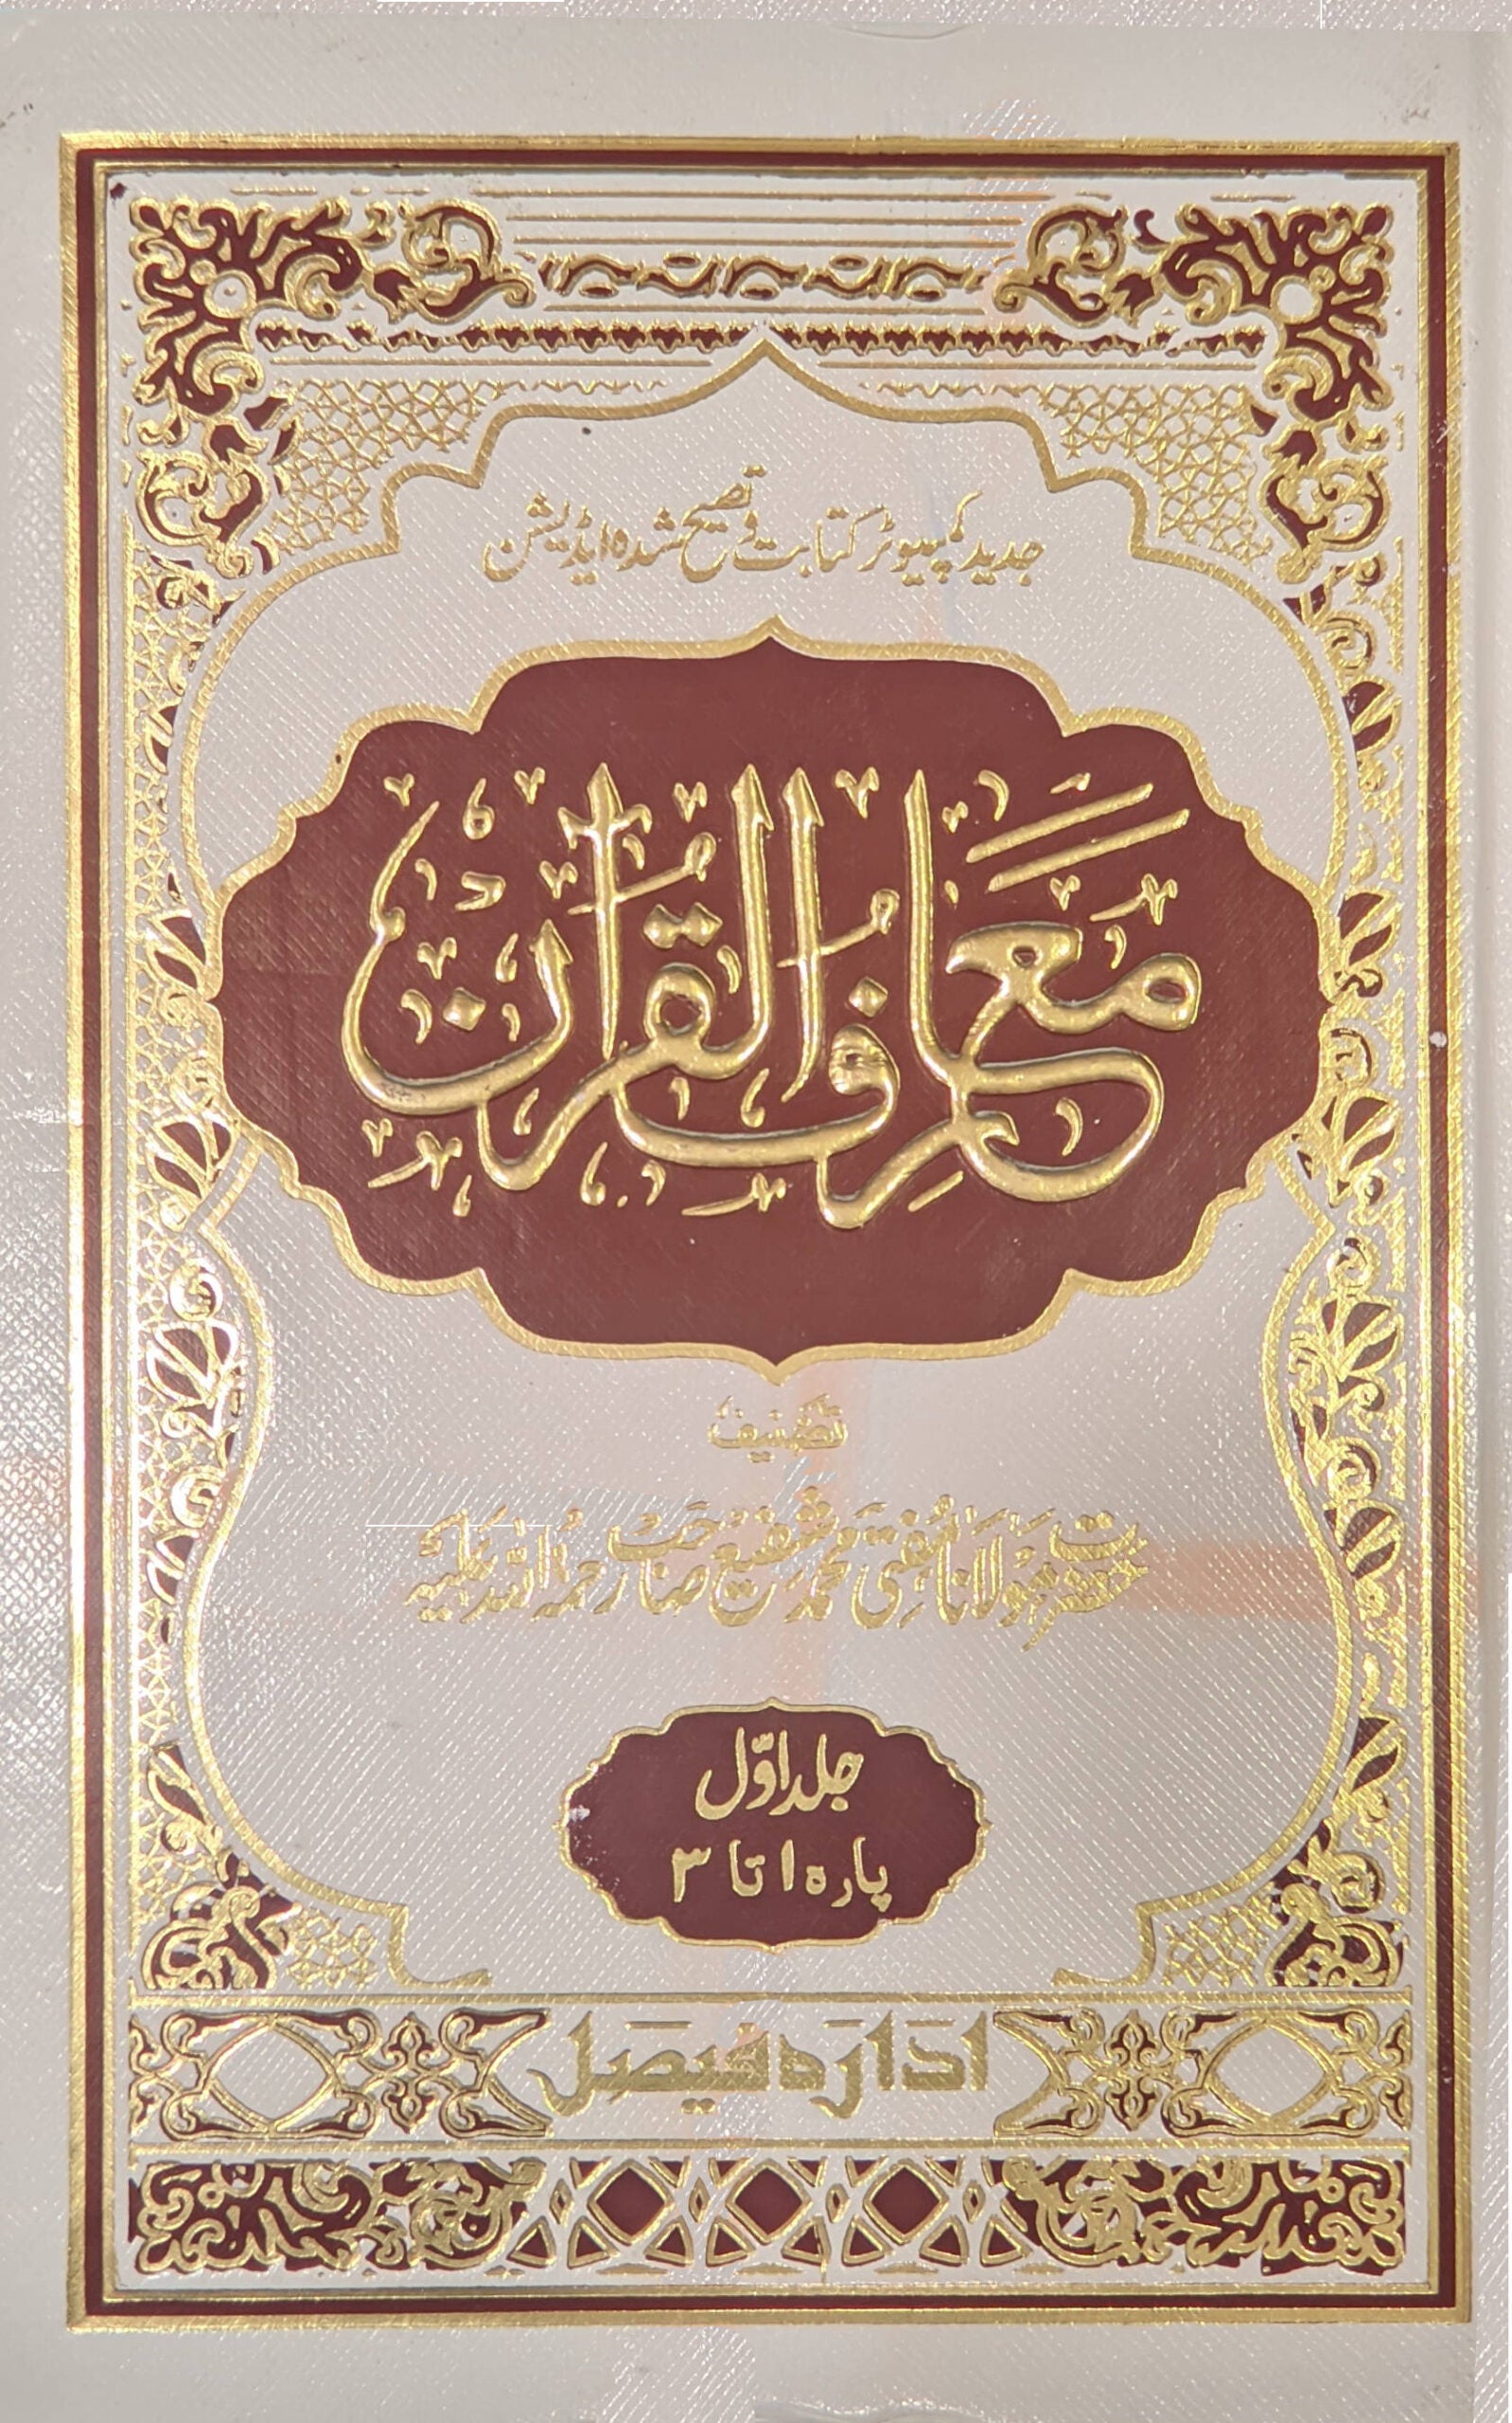 جدید کمپیوٹر کتابت و تصحیح شدہ ایڈیشن
مَعَارِفُ القُرآن
تصنیف
حضرت مولانا مفتی محمد شفیع صاحب رحمۃ اللہ علیہ
جلد اوّل
پارہ ۱ تا ۳
ادارہ فیصل